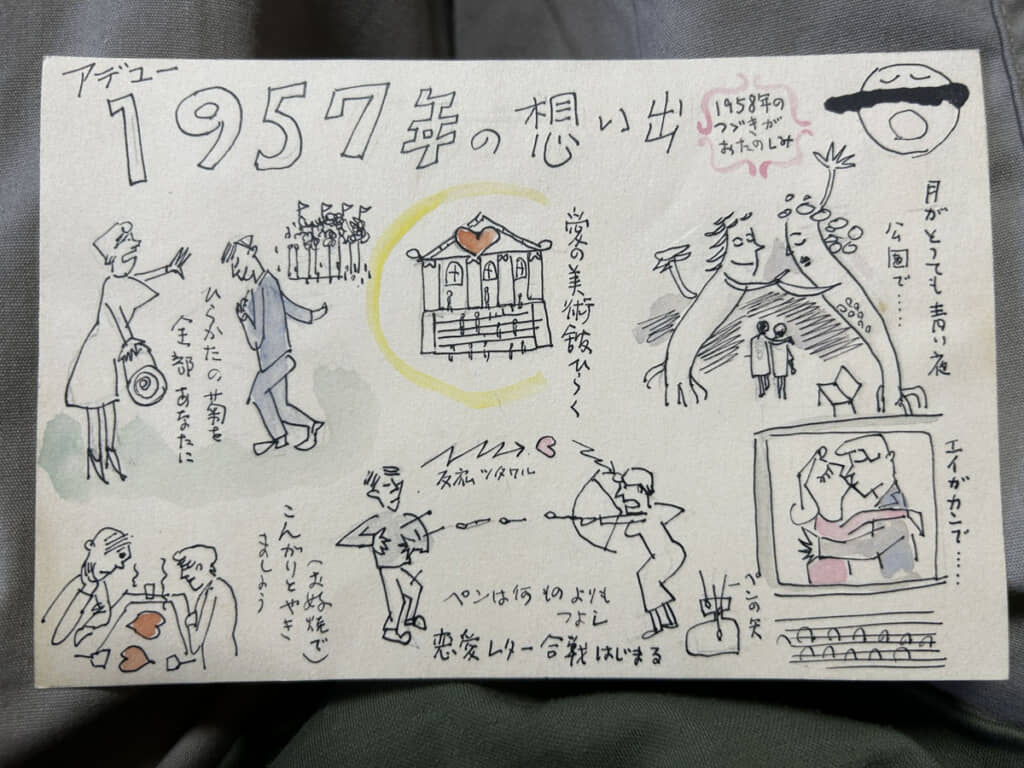 アデュー
1957年の想い出
1958年の
つづきが
おたのしみ
ひらかたの菊を
全部あなたに
愛の美術館ひらく
月がとっても青い夜
公園で……
エイガカンで……
こんがりとやき
ましょう
(お好焼で)
ツタワル
ペンは何ものよりも
つよし
恋愛レター合戦はじまる
ペンの矢